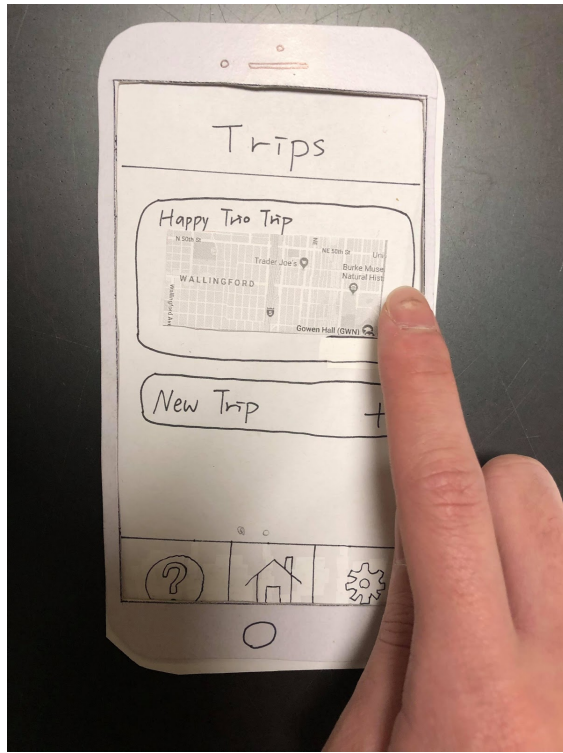 Trips
Happy Trio Trip
N 50th St
NE 50th St
Uni
Trader Joe's
Burke Muse
Natural Hist
WALLINGFORD
Wallingford Av
5
Gowen Hall (GWN)
New Trip +
?